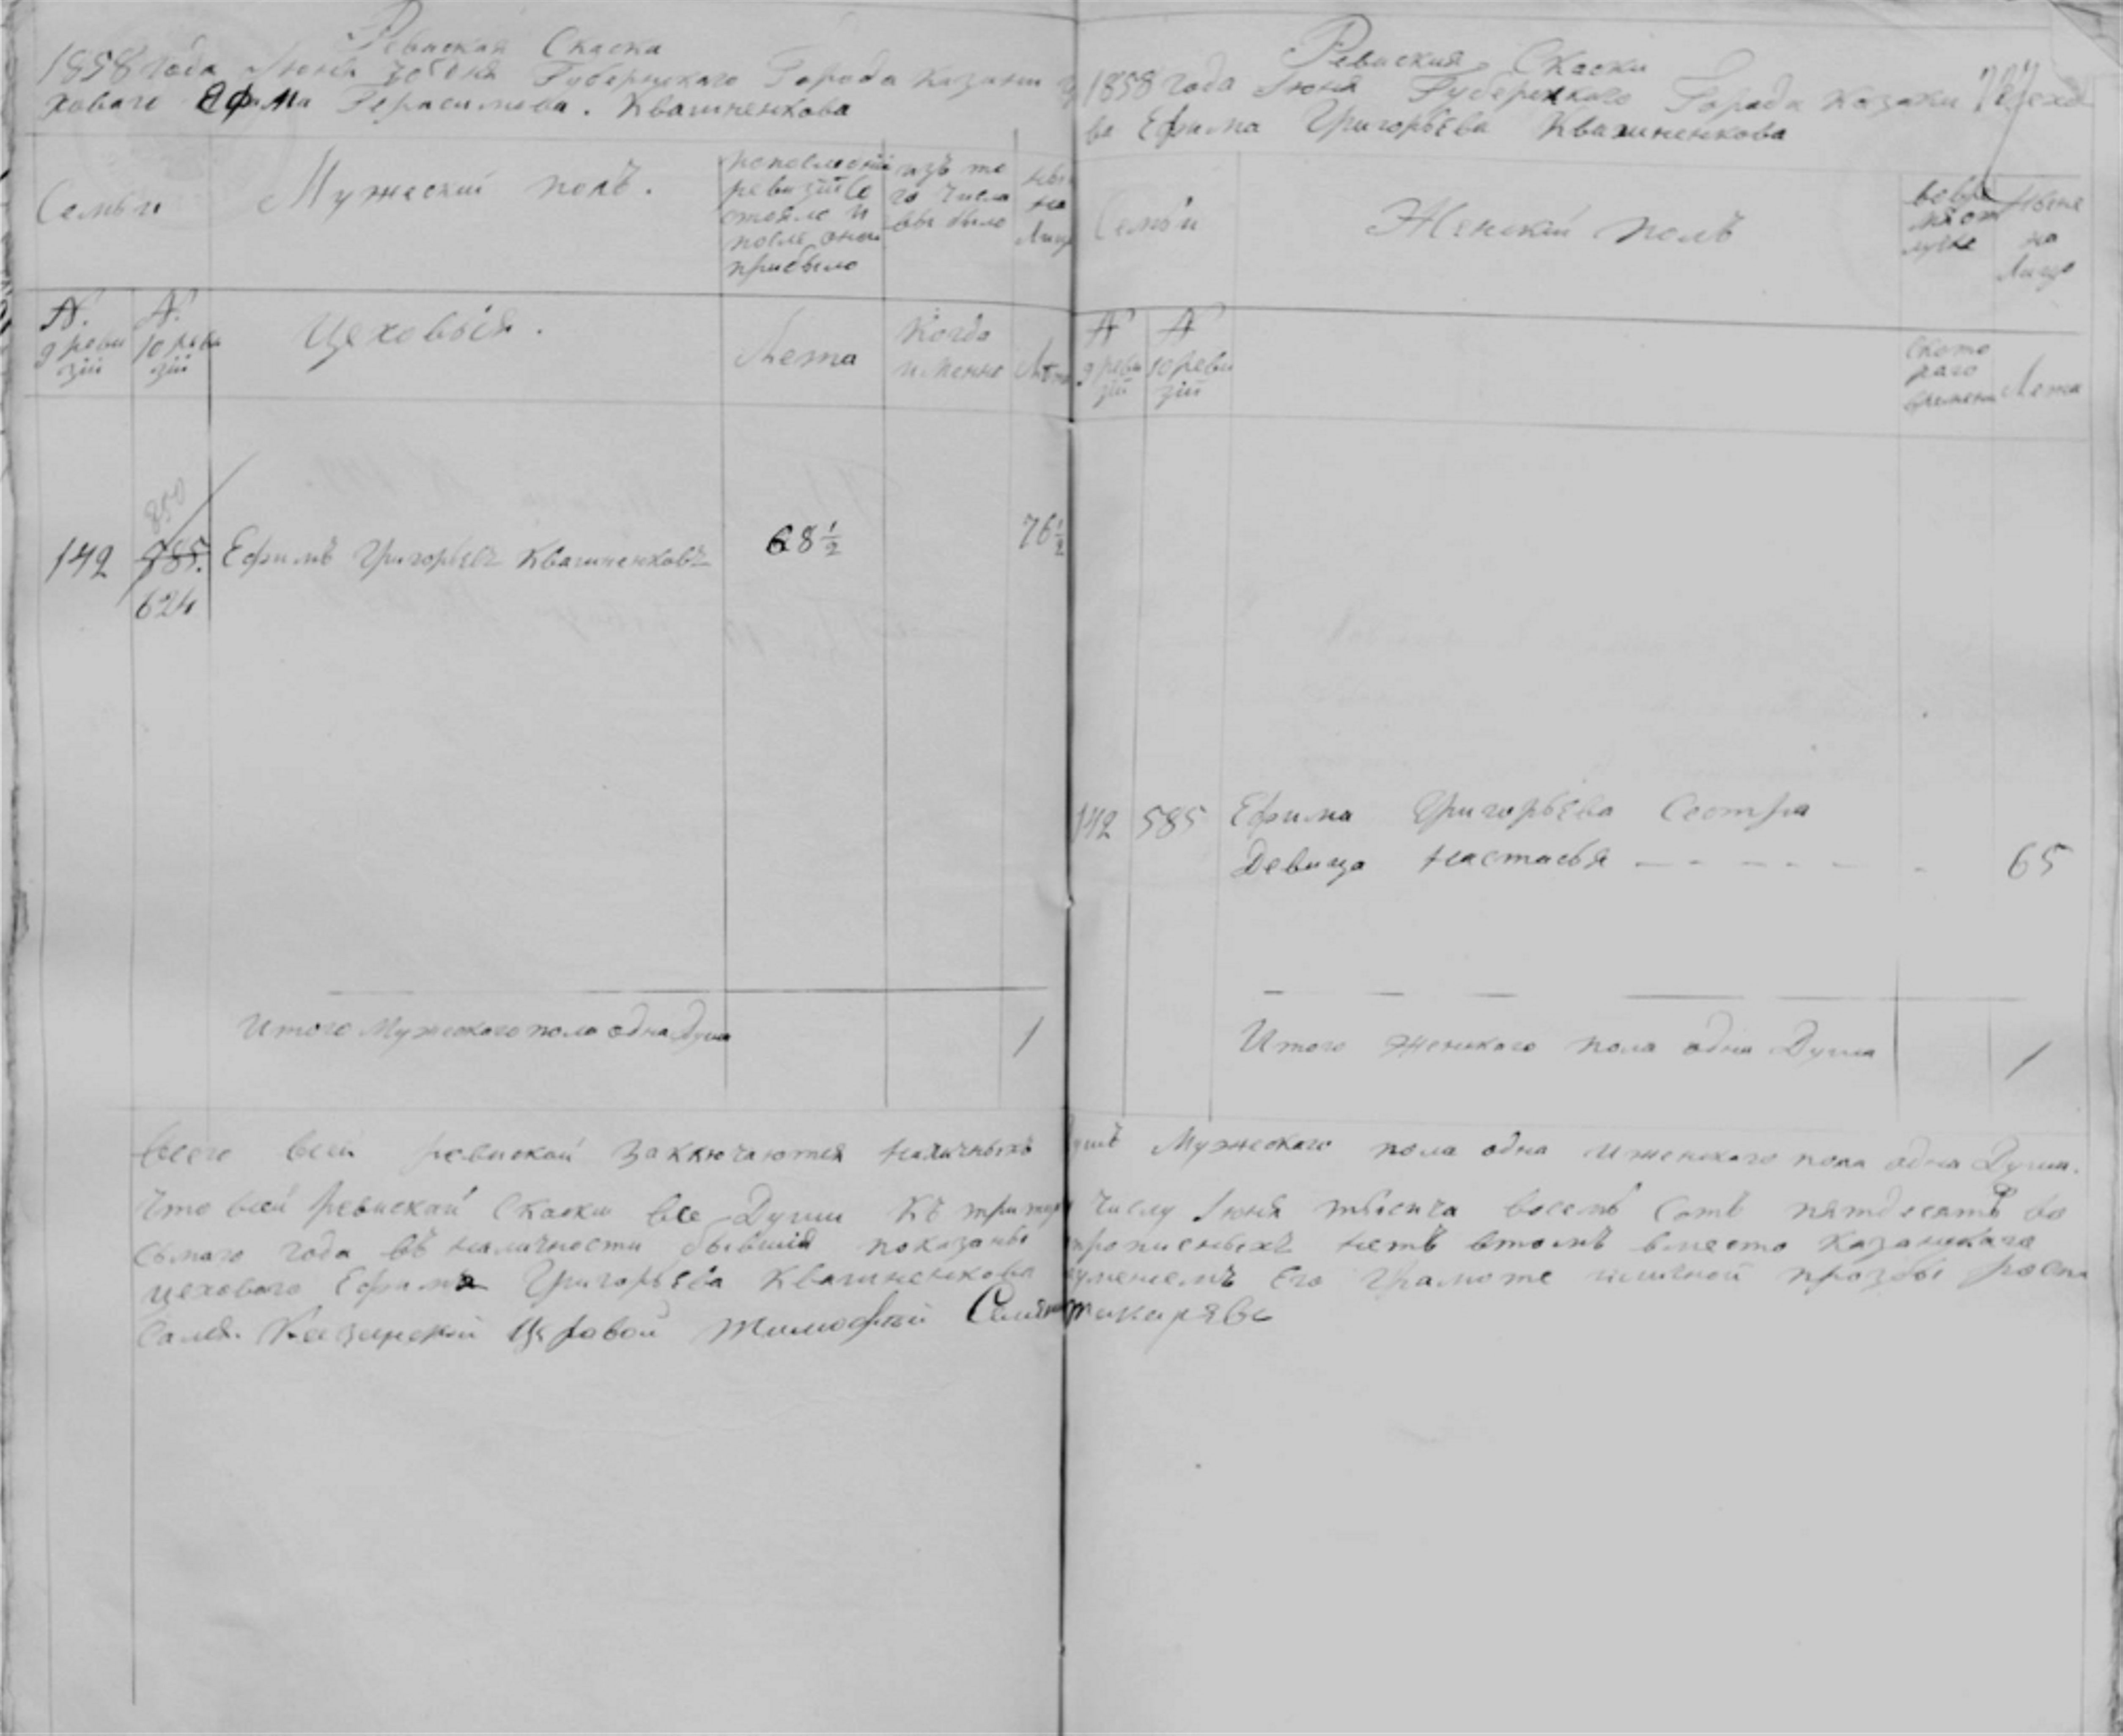 Ревиская Скаска
1858 года Июня 3го дня Губернскаго Города Казани Це
ховаго Ефима Герасимова. Квашненкова
Семьи
Мужеский полъ.
пополедней
ревизии Со
стояло и
после оной
прибыло
изъ то
го числа
выбыло
ныне
на
Лицо
№
9 реви
зіи
№
10 реви
зіи
Цеховыя.
Лета
Когда
именно
Лета
142
850
785.
624
Ефимъ Григорьевъ Квашненковъ
68 1/2
76 1/2
Итого Мужескаго пола одна Душа
1
Ревиская Скаски
1858 года Июня Губернскаго Города Казани Цехо
ва Ефима Григорьева Квашненкова
Семьи
Женскій полъ
вовре
мяот
лучке
Ныне
на
Лицо
№
9 реви
зіи
№
10 реви
зіи
Ското
раго
времени
Лета
142
585
Ефима Григорьева Сестра
Девица Настасья
65
Итого Женскаго пола одна Душа
1
Всего всей ревиской заключаются наличныхъ Душъ Мужескаго пола одна иженскаго пола одна Душа.
Что всей Ревиской Скаски все Души къ третему числу Июня тысича восемь сотъ пятдесятъ во
сьмаго года въ наличности бывшія показаны прописныхъ нетъ втомъ вместо Казанскаго
цеховаго Ефима Григорьева Квашненкова Его Грамоте иличной прозбы роспи
сался. Казанской Цеховой Тимофей